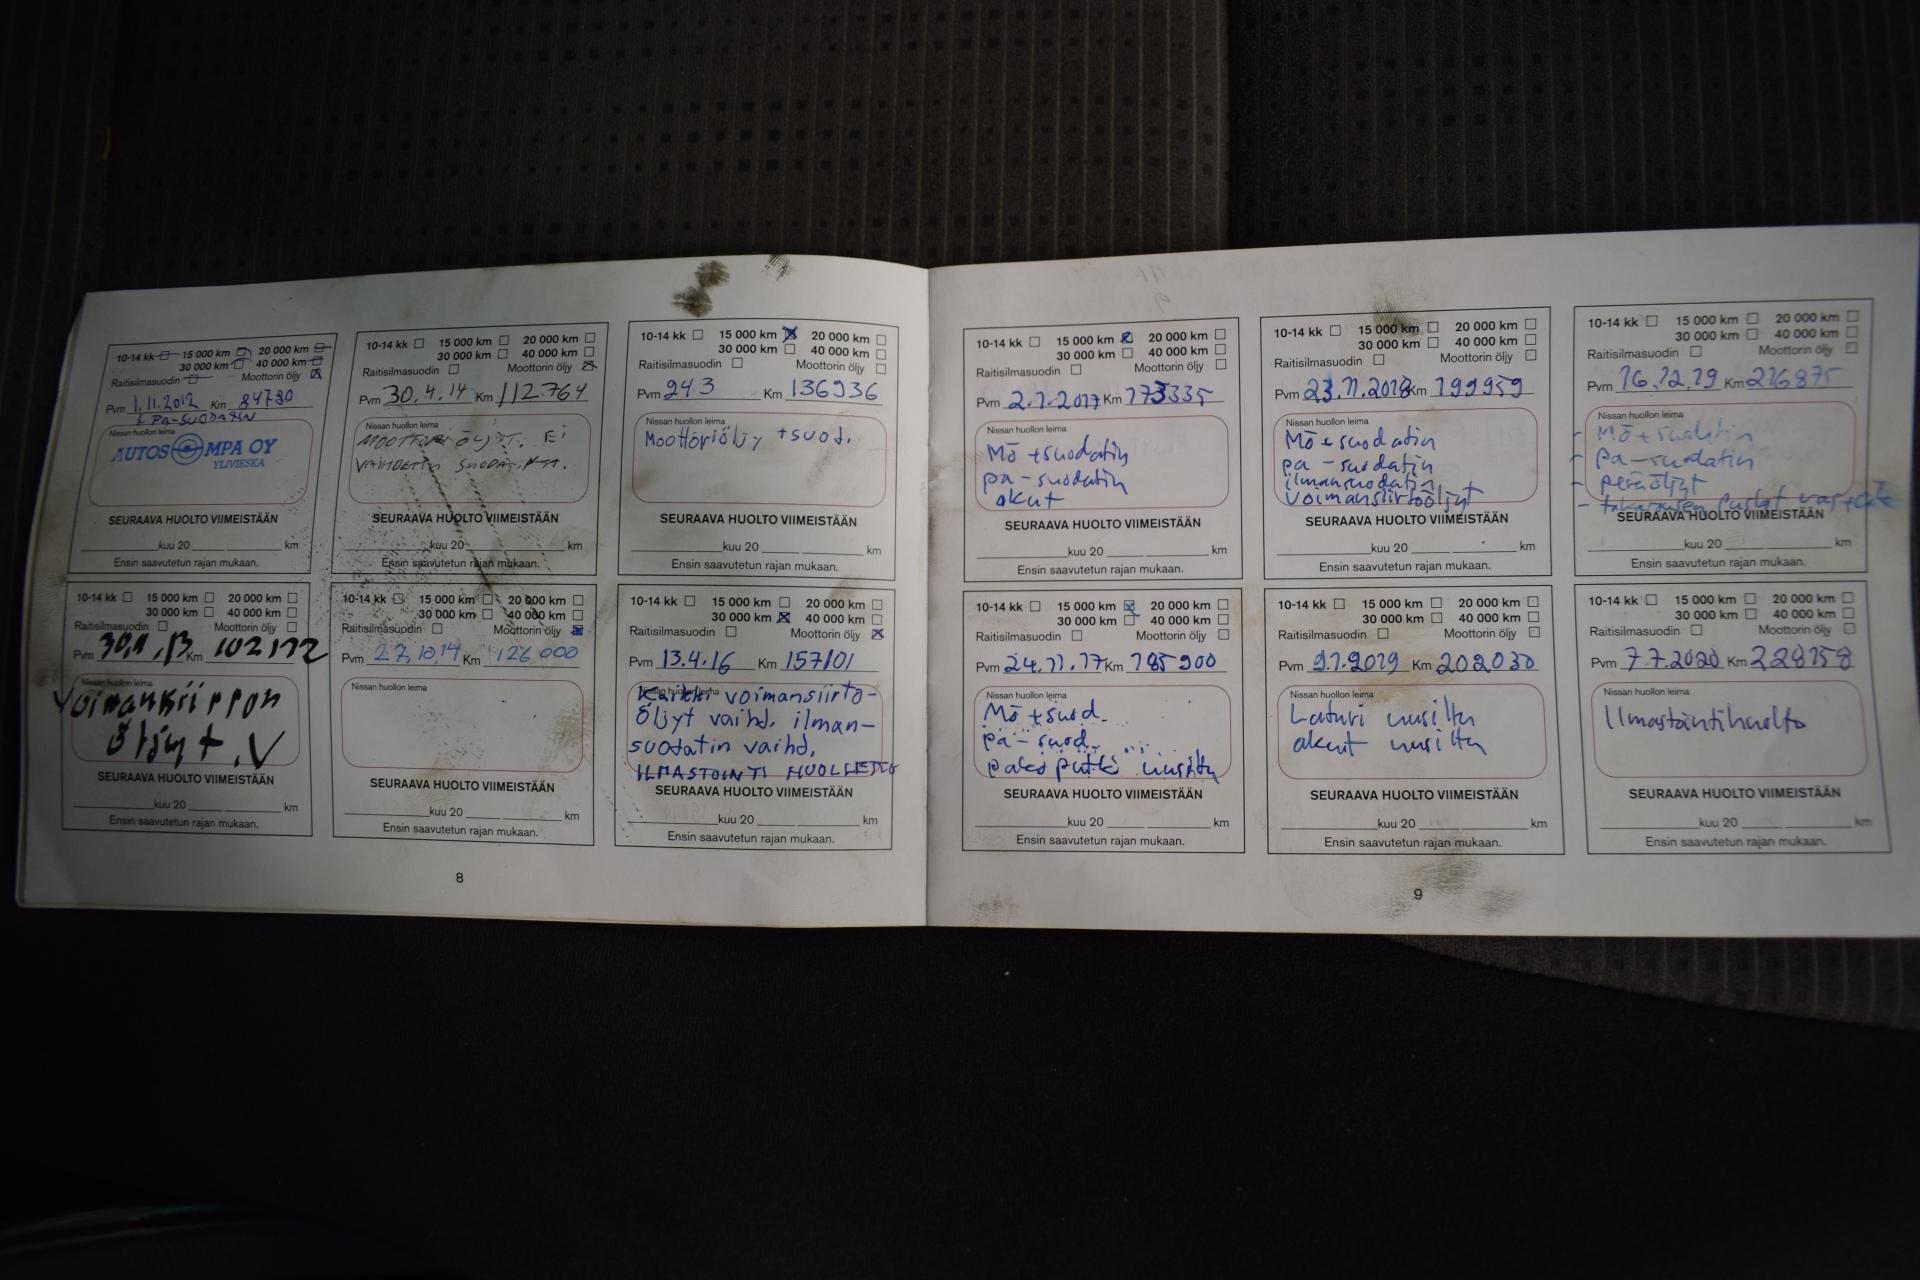 10-14 kk 15 000 km 20 000 km
30 000 km 40 000 km
Raitisilmasuodin Moottorin öljy
Pvm 1.11.2012 Km 84780
+ PA-SUODATIN
Nissan huollon leima
AUTOS MPA OY
YLIVIESKA
SEURAAVA HUOLTO VIIMEISTÄÄN
kuu 20 km
Ensin saavutetun rajan mukaan.
10-14 kk 15 000 km 20 000 km
30 000 km 40 000 km
Raitisilmasuodin Moottorin öljy
Pvm 30.1.13 Km 102172
Nissan huollon leima
Voimansiirron
öljyt. V
SEURAAVA HUOLTO VIIMEISTÄÄN
kuu 20 km
Ensin saavutetun rajan mukaan.
10-14 kk 15 000 km 20 000 km
30 000 km 40 000 km
Raitisilmasuodin Moottorin öljy
Pvm 30.4.14 Km 112.764
Nissan huollon leima
MOOTTORIÖLJYT. EI
VAIHDETTU SUODATINTA.
SEURAAVA HUOLTO VIIMEISTÄÄN
kuu 20 km
Ensin saavutetun rajan mukaan.
10-14 kk 15 000 km 20 000 km
30 000 km 40 000 km
Raitisilmasuodin Moottorin öljy
Pvm 27.10.14 Km 126 000
Nissan huollon leima
SEURAAVA HUOLTO VIIMEISTÄÄN
kuu 20 km
Ensin saavutetun rajan mukaan.
10-14 kk 15 000 km 20 000 km
30 000 km 40 000 km
Raitisilmasuodin Moottorin öljy
Pvm 24.3 Km 136936
Nissan huollon leima
Moottoriöljy + suod.
SEURAAVA HUOLTO VIIMEISTÄÄN
kuu 20 km
Ensin saavutetun rajan mukaan.
10-14 kk 15 000 km 20 000 km
30 000 km 40 000 km
Raitisilmasuodin Moottorin öljy
Pvm 13.4.16 Km 157101
Nissan huollon leima
Kaikki voimansiirto-
öljyt vaihd. ilman-
suodatin vaihd.
ILMASTOINTI HUOLLETTU
SEURAAVA HUOLTO VIIMEISTÄÄN
kuu 20 km
Ensin saavutetun rajan mukaan.
8
10-14 kk 15 000 km 20 000 km
30 000 km 40 000 km
Raitisilmasuodin Moottorin öljy
Pvm 2.1.2017 Km 173335
Nissan huollon leima
Mö + suodatin
pa-suodatin
akut
SEURAAVA HUOLTO VIIMEISTÄÄN
kuu 20 km
Ensin saavutetun rajan mukaan.
10-14 kk 15 000 km 20 000 km
30 000 km 40 000 km
Raitisilmasuodin Moottorin öljy
Pvm 24.11.17 Km 185900
Nissan huollon leima
Mö + suod.
pa-suod.
pakoputki uusittu
SEURAAVA HUOLTO VIIMEISTÄÄN
kuu 20 km
Ensin saavutetun rajan mukaan.
10-14 kk 15 000 km 20 000 km
30 000 km 40 000 km
Raitisilmasuodin Moottorin öljy
Pvm 23.11.2018 Km 199959
Nissan huollon leima
Mö + suodatin
pa-suodatin
ilmansuodatin +
voimansiirtoöljyt
SEURAAVA HUOLTO VIIMEISTÄÄN
kuu 20 km
Ensin saavutetun rajan mukaan.
10-14 kk 15 000 km 20 000 km
30 000 km 40 000 km
Raitisilmasuodin Moottorin öljy
Pvm 9.1.2019 Km 202030
Nissan huollon leima
Laturi uusittu
akut uusittu
SEURAAVA HUOLTO VIIMEISTÄÄN
kuu 20 km
Ensin saavutetun rajan mukaan.
10-14 kk 15 000 km 20 000 km
30 000 km 40 000 km
Raitisilmasuodin Moottorin öljy
Pvm 16.12.19 Km 216875
Nissan huollon leima
- Mö + suodatin
- pa-suodatin
- peräöljyt
- puslat
SEURAAVA HUOLTO VIIMEISTÄÄN
kuu 20 km
Ensin saavutetun rajan mukaan.
10-14 kk 15 000 km 20 000 km
30 000 km 40 000 km
Raitisilmasuodin Moottorin öljy
Pvm 7.7.2020 Km 228158
Nissan huollon leima
Ilmastointihuolto
SEURAAVA HUOLTO VIIMEISTÄÄN
kuu 20 km
Ensin saavutetun rajan mukaan.
9